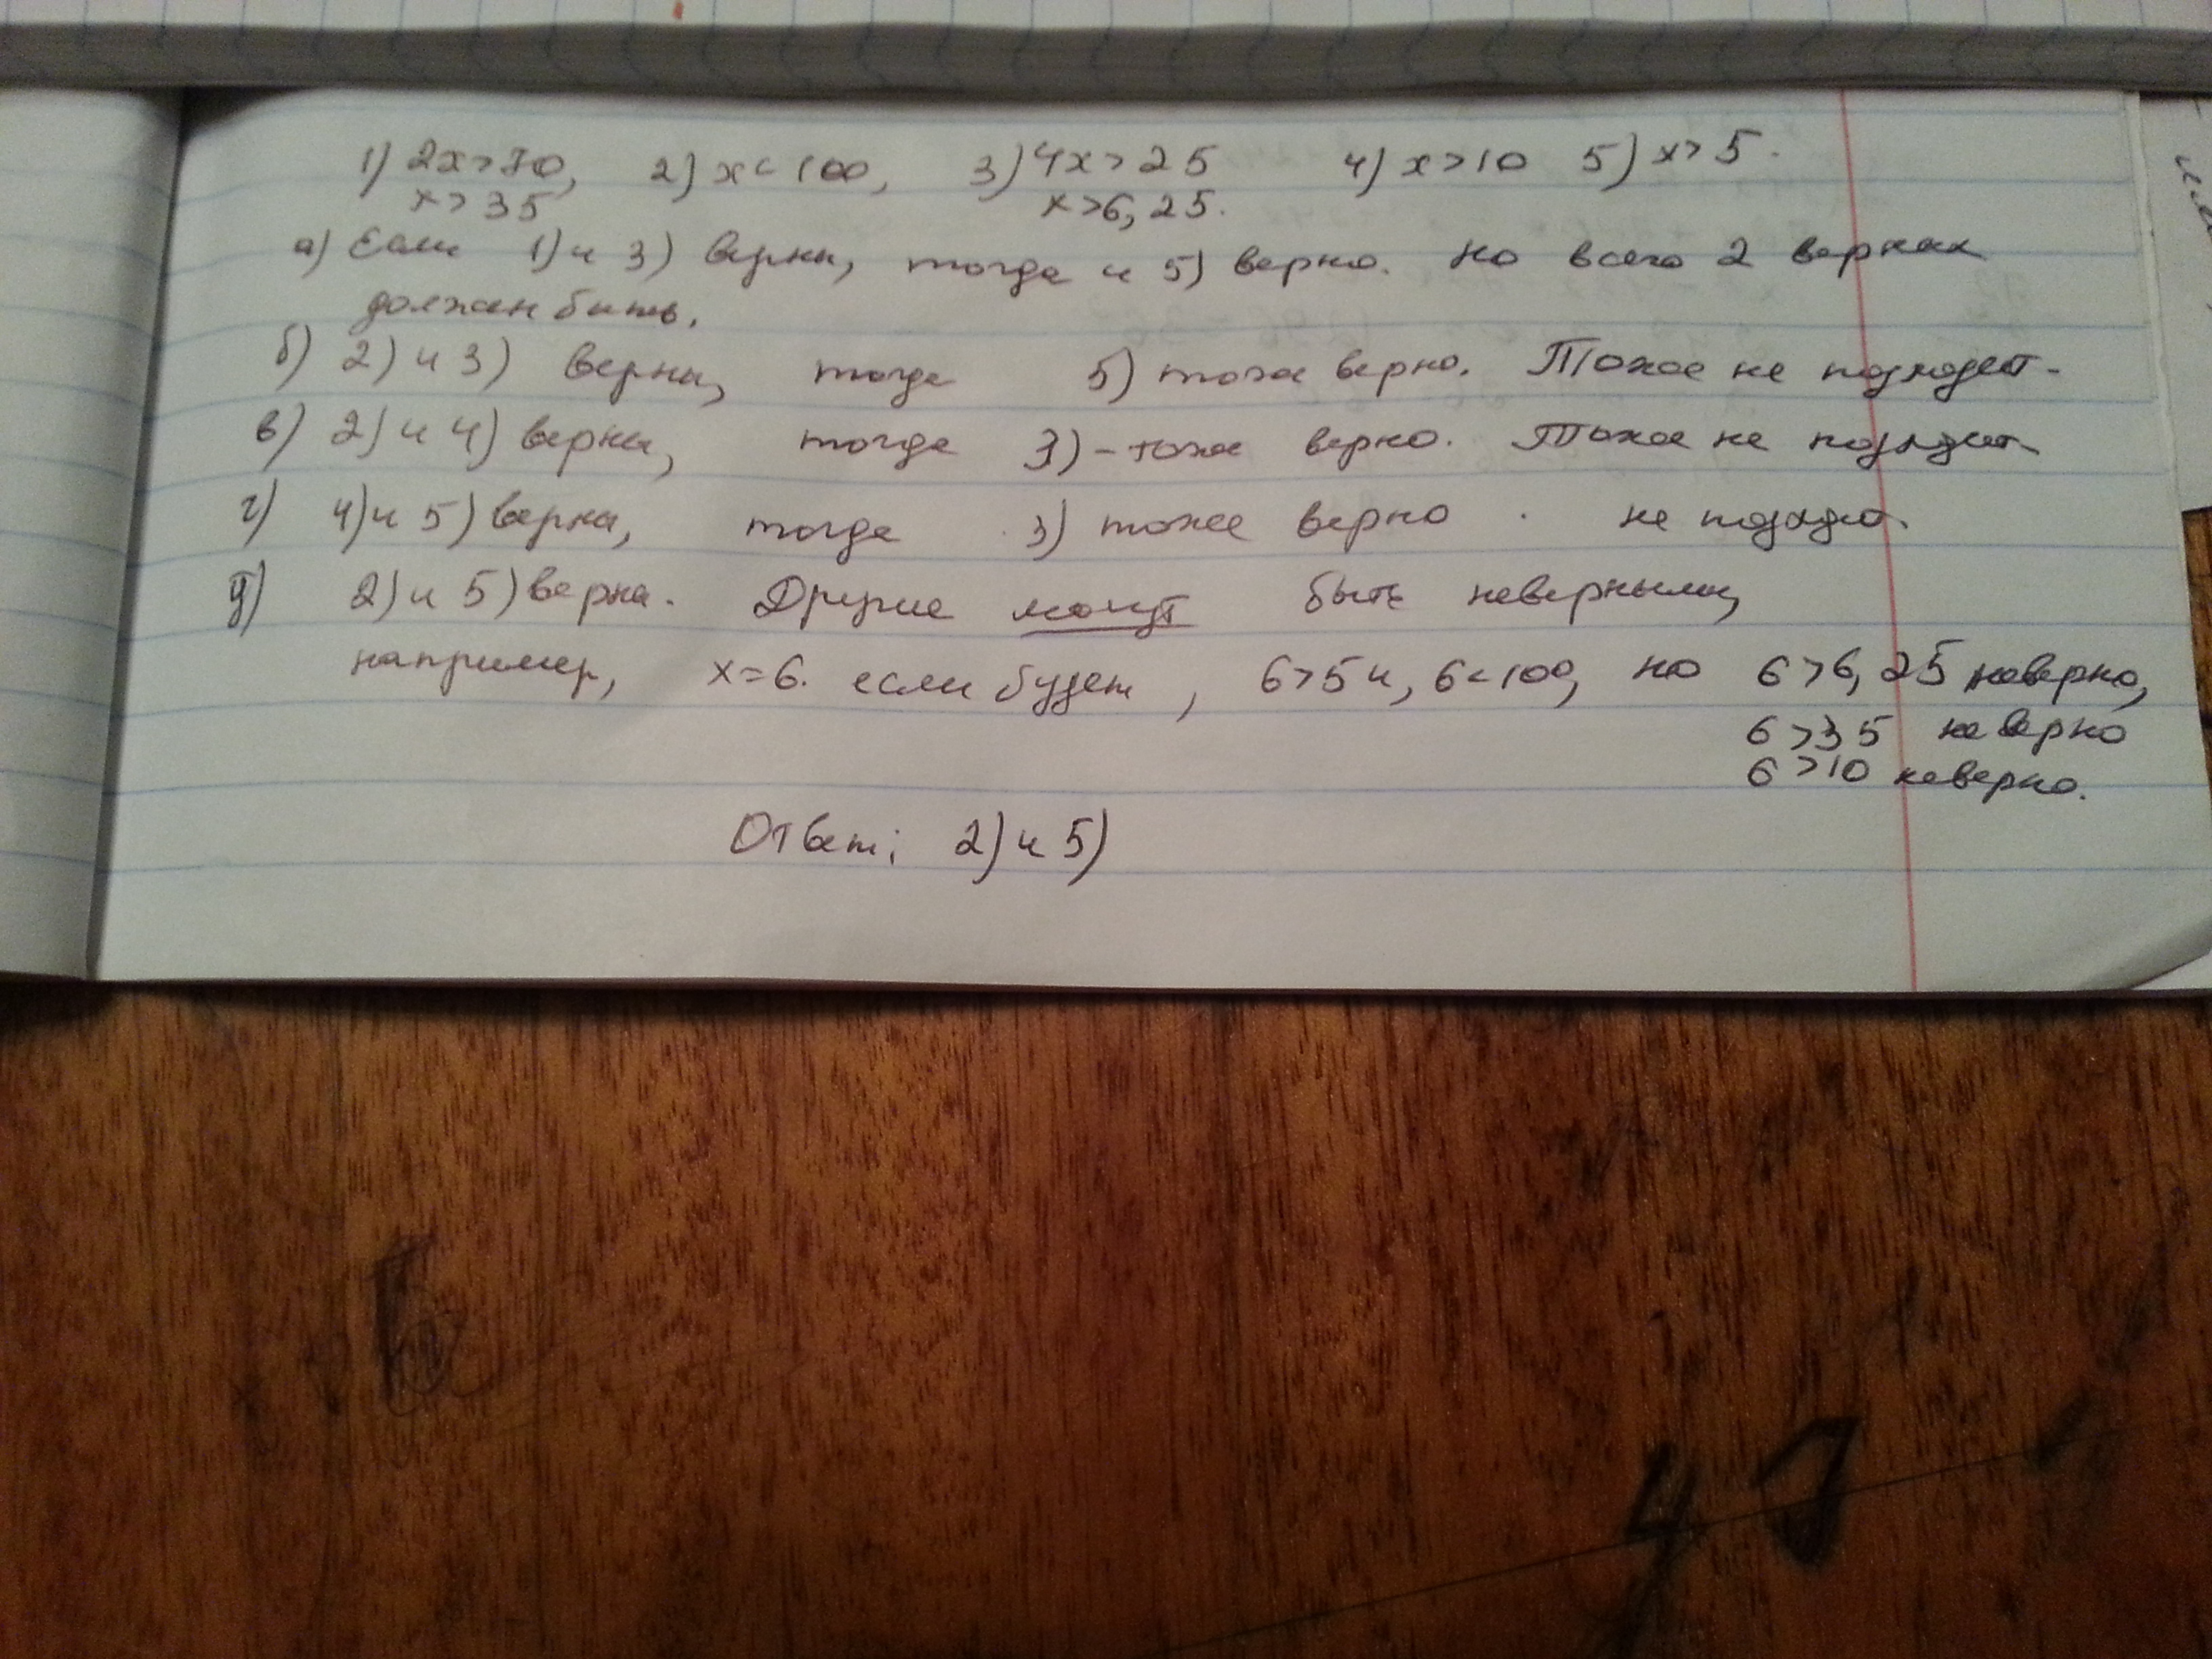 1) 2x>70, 2) x<100, 3) 4x>25 4) x>10 5) x>5.
x>35 x>6,25.
а) Если 1) и 3) верны, тогда и 5) верно. Но всего 2 верных
должен быть.
б) 2) и 3) верны, тогда 5) тоже верно. Тоже не подходит.
в) 2) и 4) верны, тогда 3) - тоже верно. Тоже не подходит.
г) 4) и 5) верна, тогда 3) тоже верно. не подходит.
д) 2) и 5) верна. Другие могут быть неверными,
например, x=6. если будет, 6>5 и, 6<100, но 6>6,25 неверно,
6>35 неверно
6>10 неверно.
Ответ: 2) и 5)
47